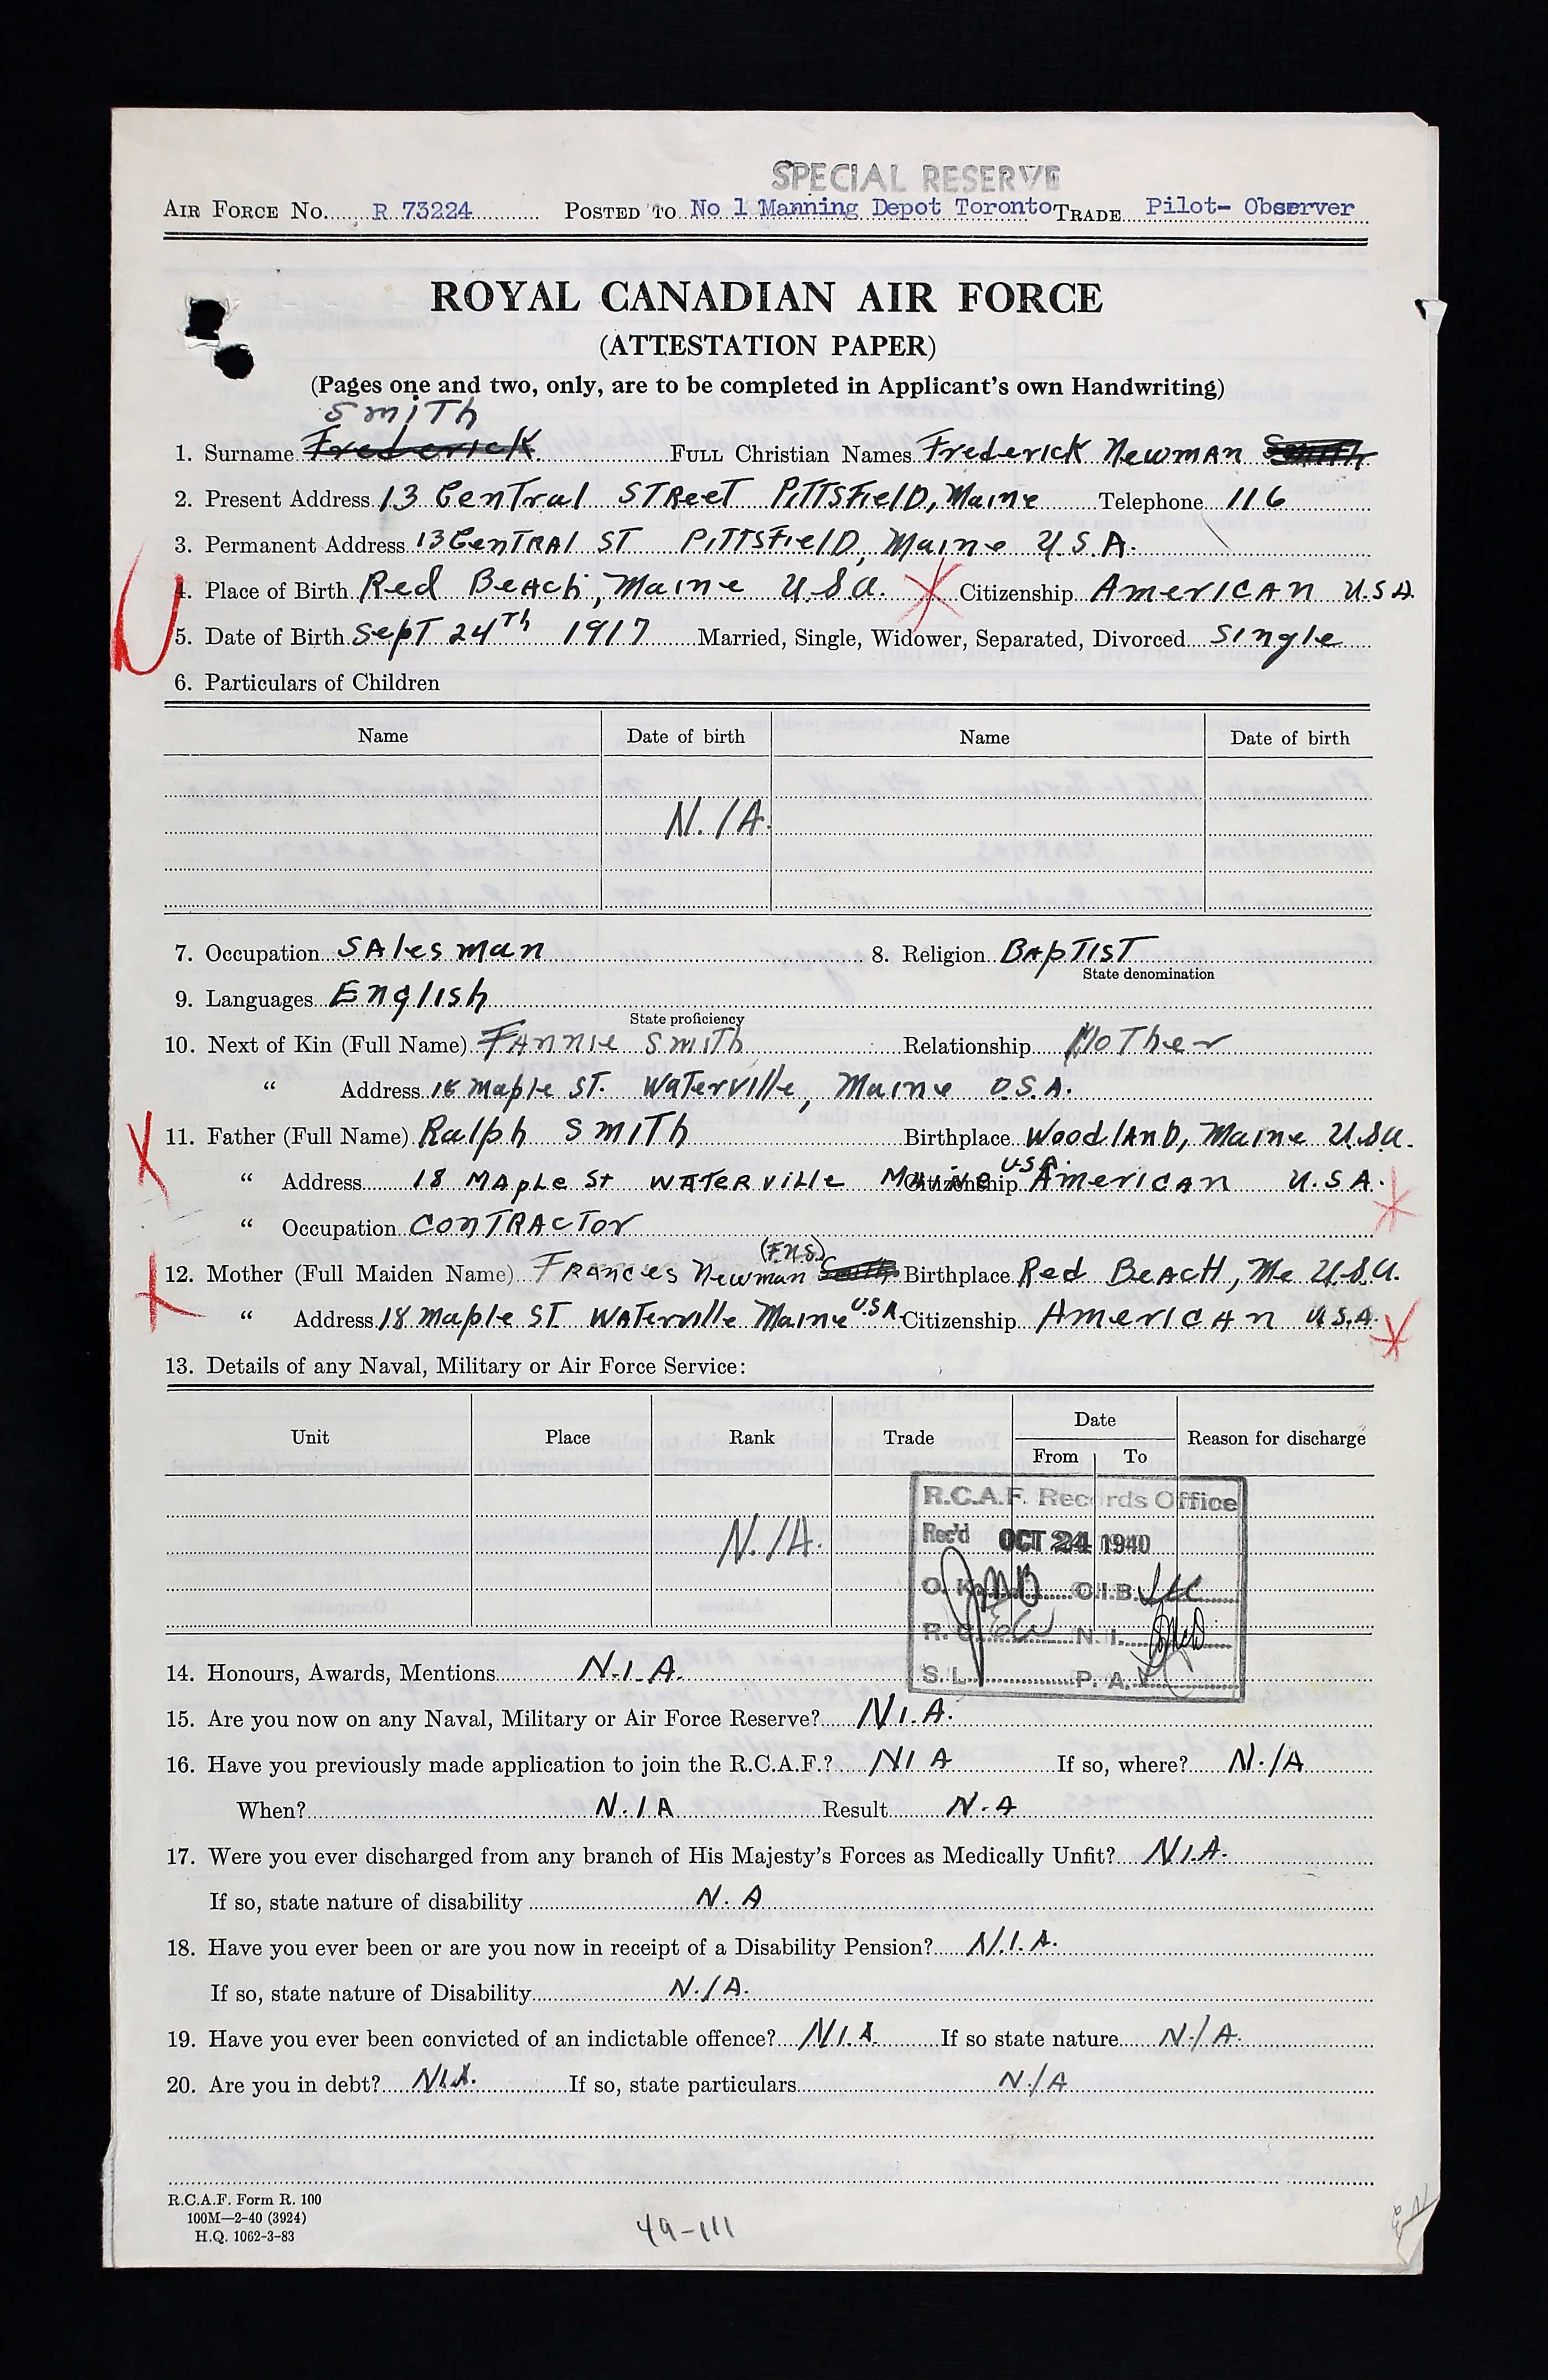 SPECIAL RESERVE
AIR FORCE NO. R 73224 POSTED TO No 1 Manning Depot Toronto TRADE Pilot- Observer
ROYAL CANADIAN AIR FORCE
(ATTESTATION PAPER)
(Pages one and two, only, are to be completed in Applicant's own Handwriting)
Smith
1. Surname Frederick FULL Christian Names Frederick Newman Smith
2. Present Address 13 Central Street Pittsfield, Maine Telephone 116
3. Permanent Address 13 Central ST Pittsfield, Maine U.S.A.
4. Place of Birth Red Beach, Maine U.S.A. Citizenship American U.S.A.
5. Date of Birth Sept 24th 1917 Married, Single, Widower, Separated, Divorced Single
6. Particulars of Children
Name Date of birth Name Date of birth
N./A.
7. Occupation Salesman 8. Religion Baptist
State denomination
9. Languages English
State proficiency
10. Next of Kin (Full Name) Fannie Smith Relationship Mother
" Address 18 Maple St. Waterville, Maine U.S.A.
11. Father (Full Name) Ralph Smith Birthplace Woodland, Maine U.S.A.
" Address 18 Maple St Waterville Maine U.S.A. Citizenship American U.S.A.
" Occupation Contractor
12. Mother (Full Maiden Name) Frances Newman (F.N.S.) Smith Birthplace Red Beach, Me U.S.A.
" Address 18 Maple ST. Waterville Maine U.S.A. Citizenship American U.S.A.
13. Details of any Naval, Military or Air Force Service:
Unit Place Rank Trade Date Reason for discharge
From To
R.C.A.F. Records Office
Rec'd OCT 24 1940
N./A.
O.K. C.I.B.
R.C. N.I.
S.L. P.A.
14. Honours, Awards, Mentions N./A.
15. Are you now on any Naval, Military or Air Force Reserve? N/.A.
16. Have you previously made application to join the R.C.A.F.? N/A If so, where? N./A
When? N./A Result N.A
17. Were you ever discharged from any branch of His Majesty's Forces as Medically Unfit? N/.A.
If so, state nature of disability N.A
18. Have you ever been or are you now in receipt of a Disability Pension? N./.A.
If so, state nature of Disability N./A.
19. Have you ever been convicted of an indictable offence? N/.A. If so state nature N./A.
20. Are you in debt? N/.A. If so, state particulars N./A
R.C.A.F. Form R. 100
100M—2-40 (3924)
H.Q. 1062-3-83
49-111